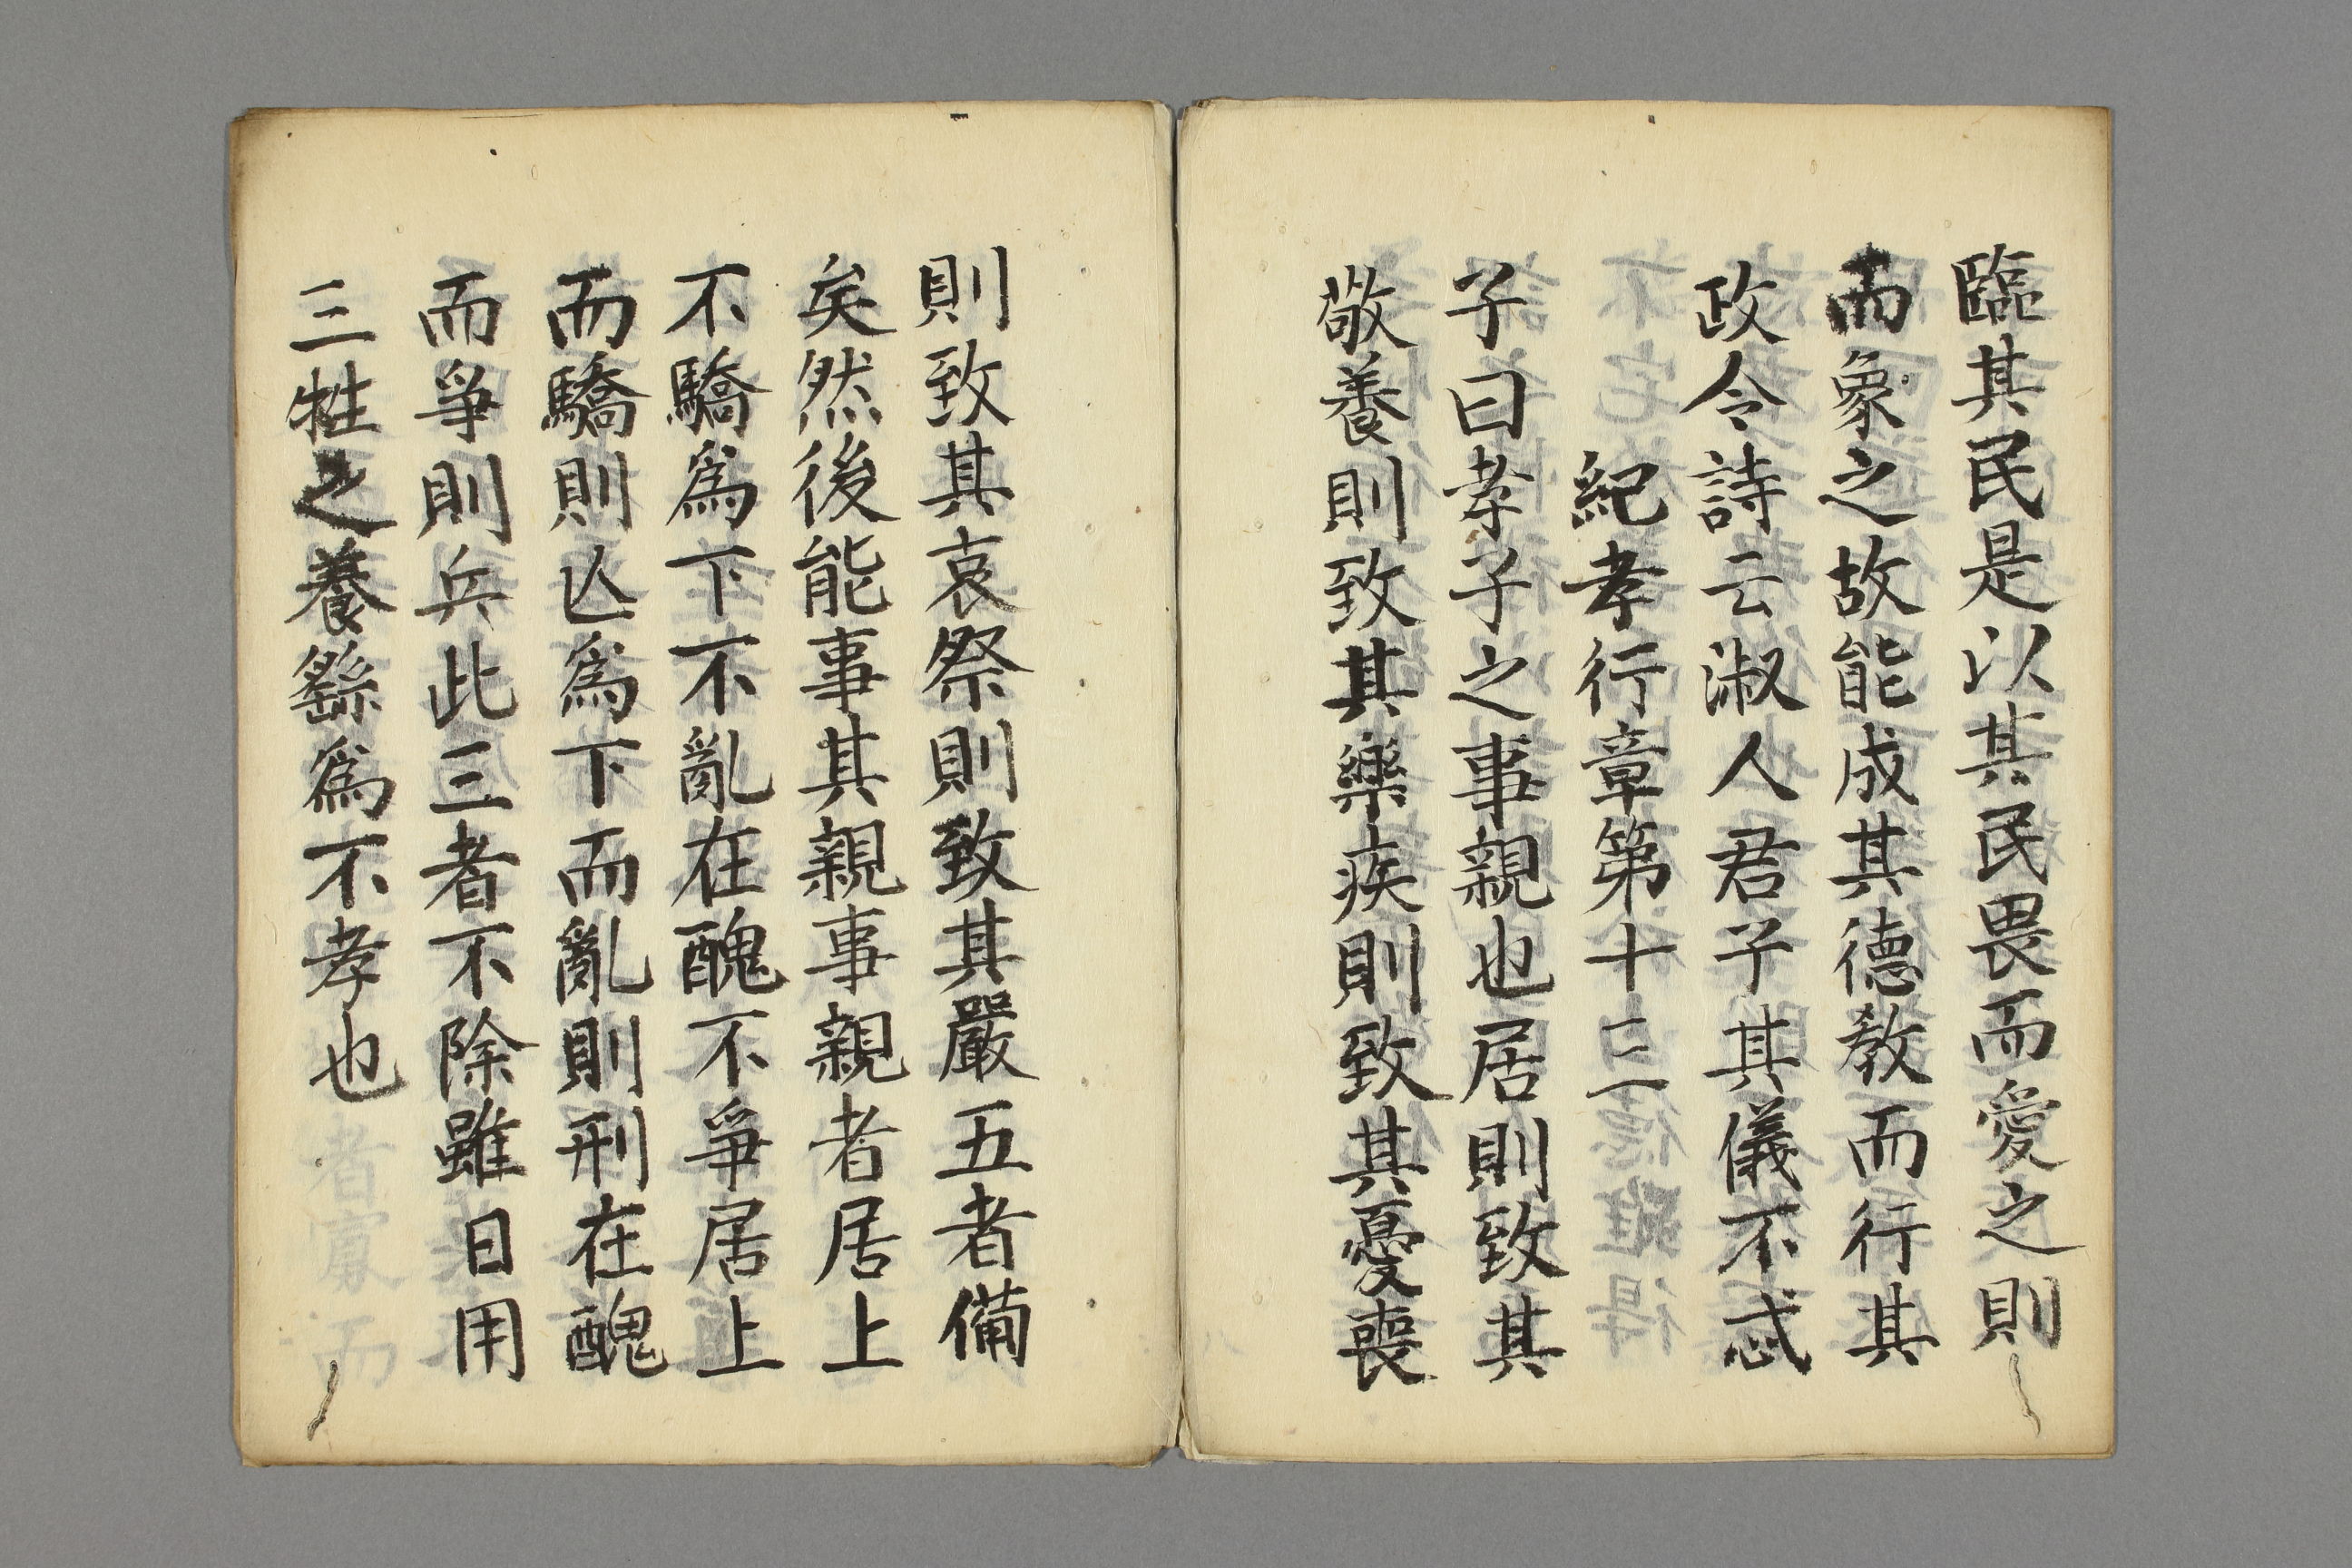 臨其民是以其民畏而愛之則
而象之故能成其德教而行其
政令詩云淑人君子其儀不忒
紀孝行章第十三
子曰孝子之事親也居則致其
敬養則致其樂疾則致其憂喪
則致其哀祭則致其嚴五者備
矣然後能事其親事親者居上
不驕爲下不亂在醜不爭居上
而驕則亾爲下而亂則刑在醜
而爭則兵此三者不除雖日用
三牲之養繇爲不孝也